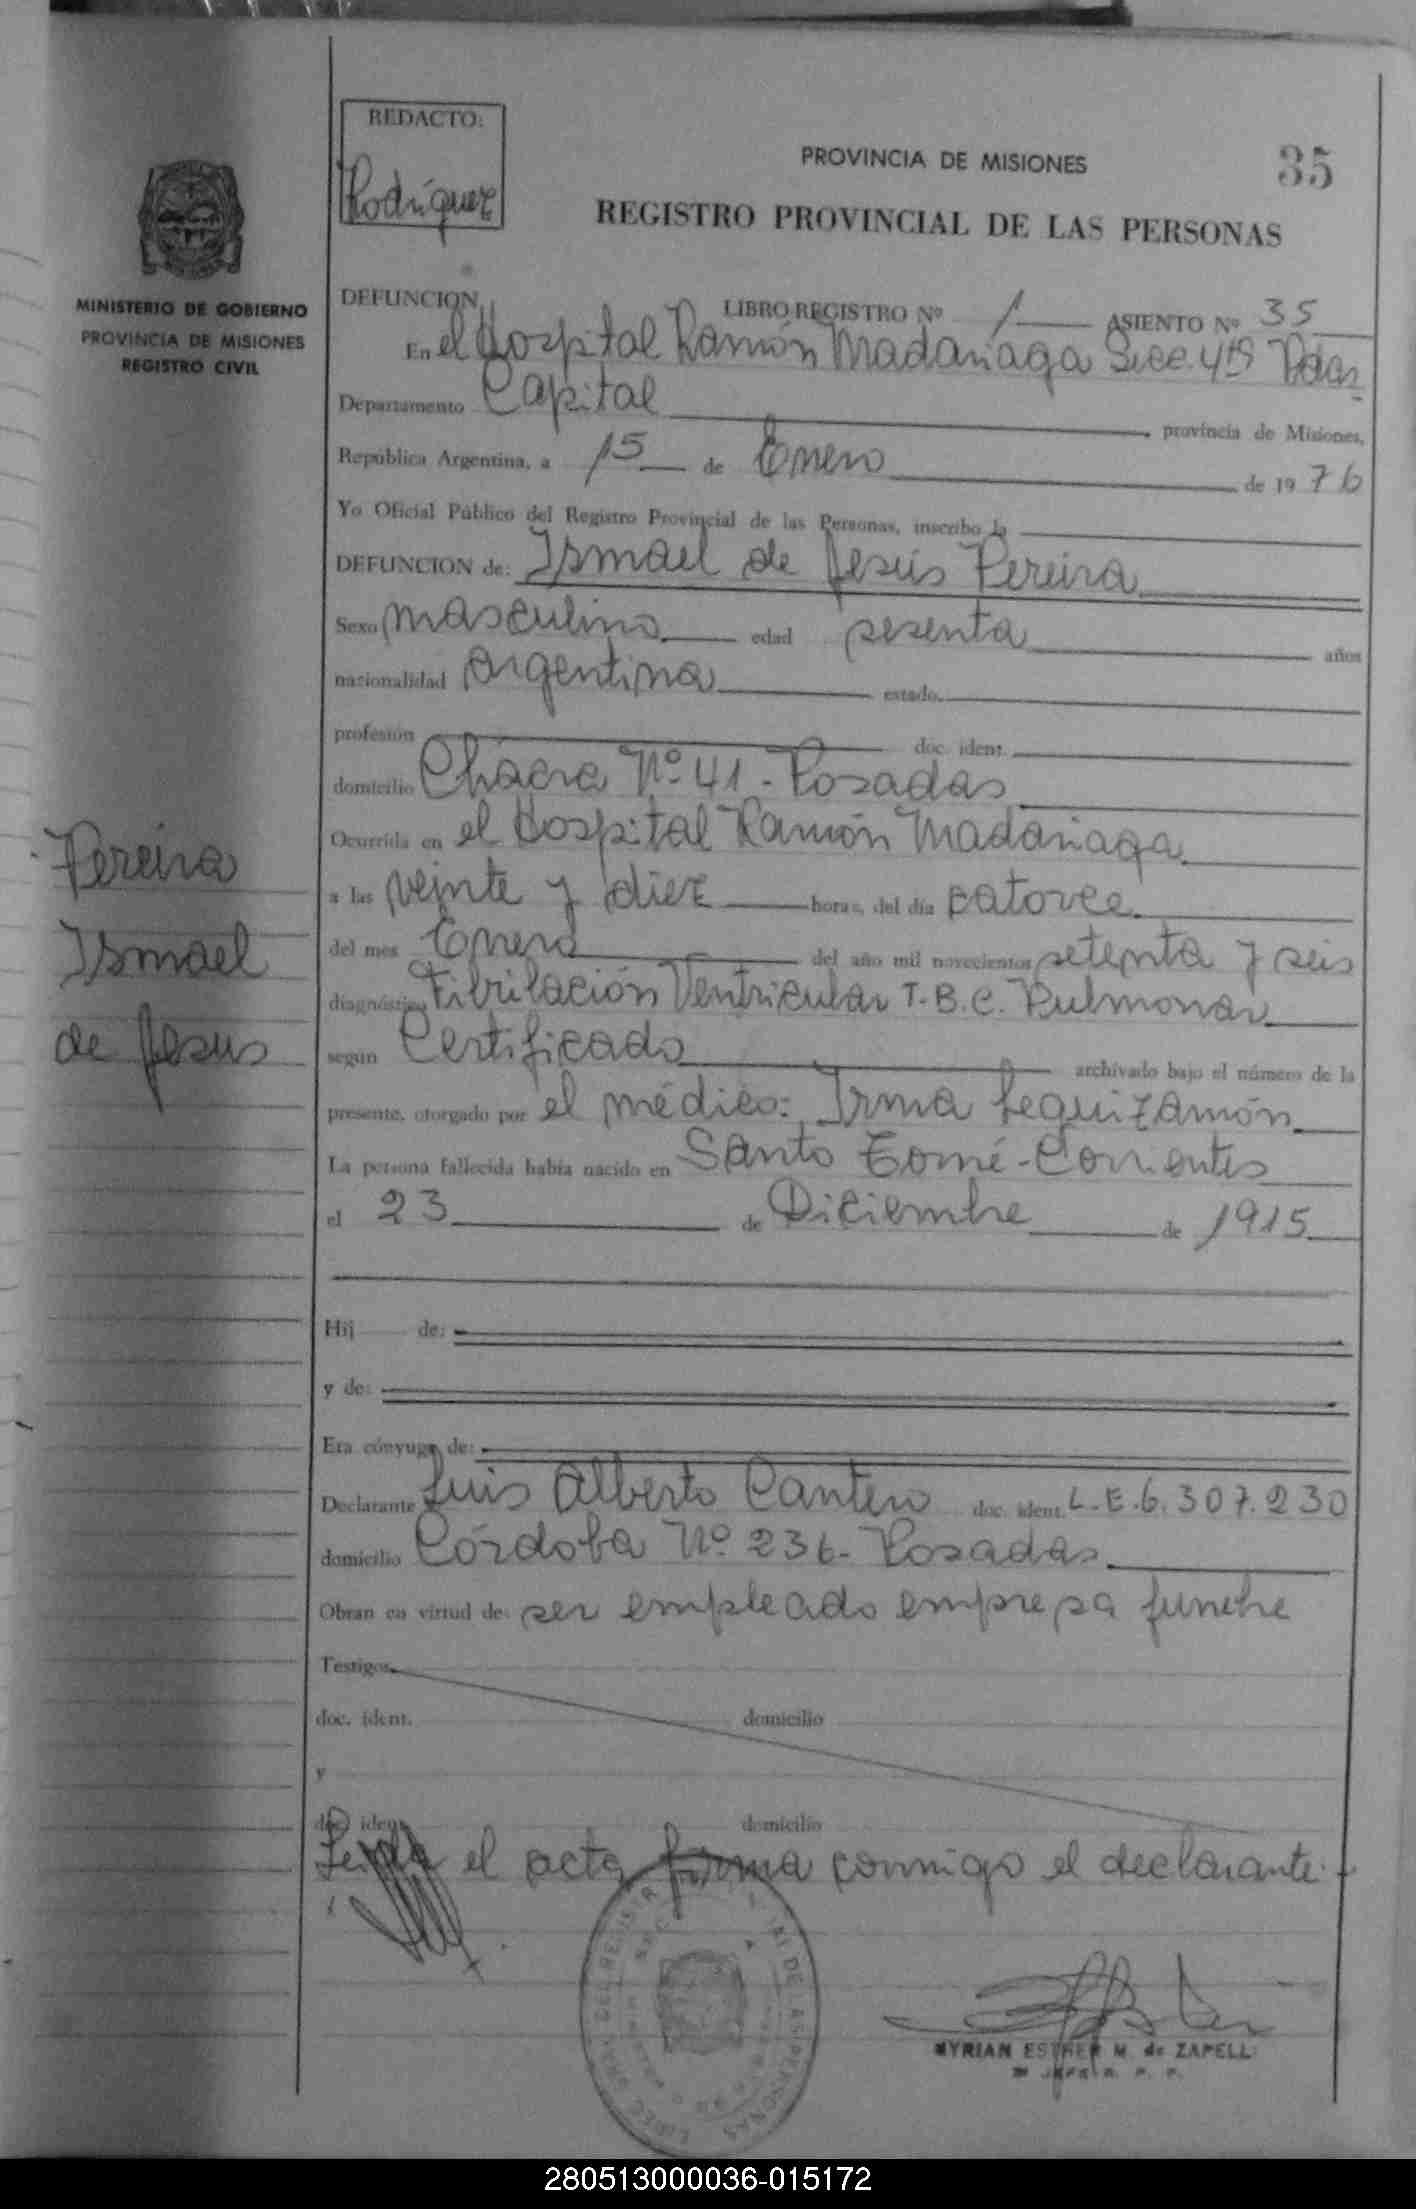 REDACTO:
Rodríguez
35
PROVINCIA DE MISIONES
REGISTRO PROVINCIAL DE LAS PERSONAS
MINISTERIO DE GOBIERNO
PROVINCIA DE MISIONES
REGISTRO CIVIL
DEFUNCION LIBRO REGISTRO Nº 1 ASIENTO Nº 35
En el Hospital Ramón Madariaga Secc. 4ta Pdas
Departamento Capital provincia de Misiones,
República Argentina, a 15 de Enero de 1976
Yo Oficial Público del Registro Provincial de las Personas, inscribo la
DEFUNCION de: Ismael de Jesús Pereira
Sexo masculino edad sesenta años
nacionalidad Argentina estado
profesión doc. ident.
domicilio Chacra Nº 41 - Posadas
Ocurrida en el Hospital Ramón Madariaga
a las veinte y diez horas, del día catorce
del mes Enero del año mil novecientos setenta y seis
diagnóstico Fibrilación Ventricular T.B.C. Pulmonar
según Certificado archivado bajo el número de la
presente, otorgado por el médico: Irma Leguizamón
La persona fallecida había nacido en Santo Tomé - Corrientes
el 23 de Diciembre de 1915
Pereira
Ismael
de Jesus
Hij de:
y de:
Era cónyuge de:
Declarante Luis Alberto Cantero doc. ident. L.E. 6.307.230
domicilio Córdoba Nº 236 - Posadas
Obran en virtud de: ser empleado empresa funebre
Testigos
doc. ident. domicilio
y
doc. ident. domicilio
Leída el acta firma conmigo el declarante.-
MYRIAN ESTHER M. de ZAPELLI
280513000036-015172